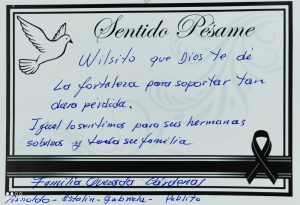 Sentido Pésame
Wilsito que Dios te dé
La fortaleza para soportar tan
dura perdida.
Igual lo sentimos para sus hermanas
sobrinos y toda su familia
Familia Quezada Cárdenas
Arnoldo - Estalin - Gabriela - Pablito